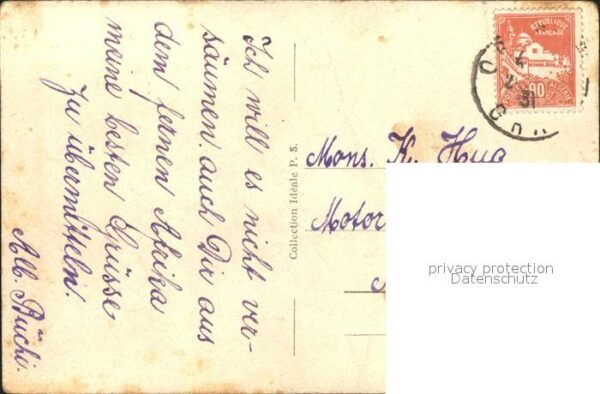 Ich will es nicht ver-
säumen auch Dir aus
dem fernen Afrika
meine besten Grüsse
zu übermitteln.
Alb. Büchi.
Collection Idéale P. S.
REPUBLIQUE
FRANÇAISE
90
ALGERIE
31
Mons. K. Hug
Motor
privacy protection
Datenschutz